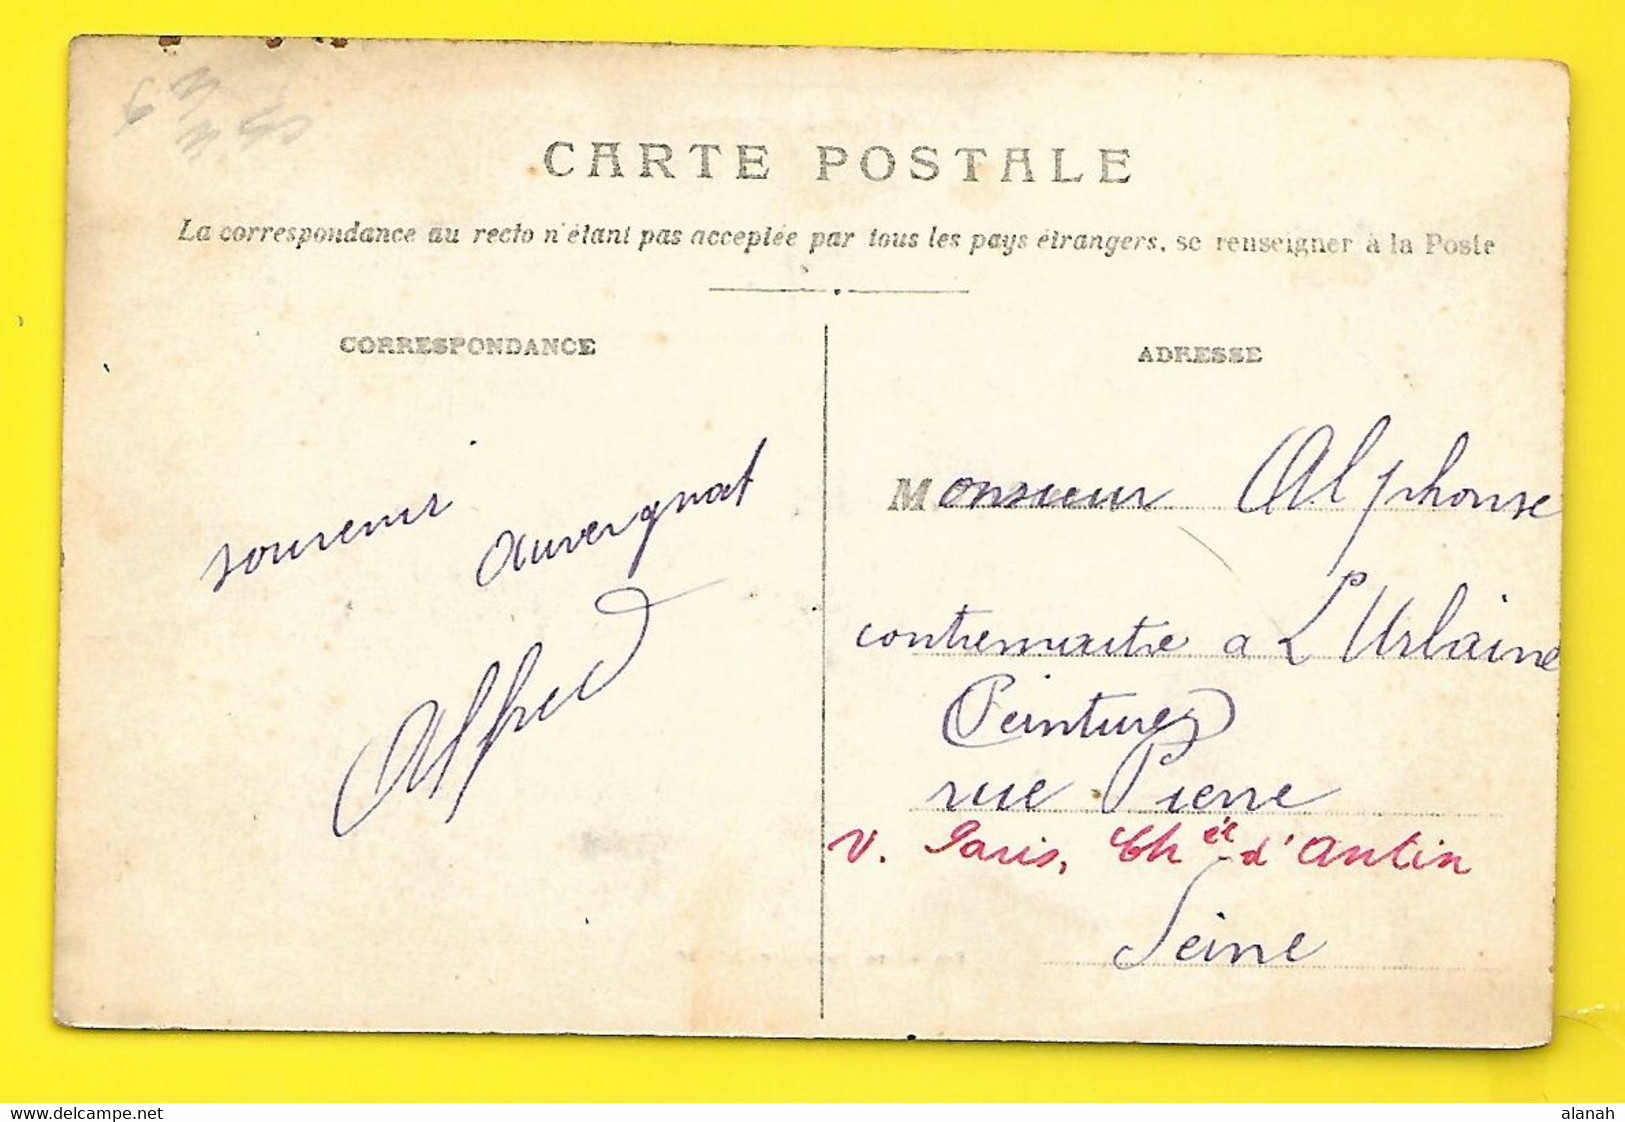 CARTE POSTALE
La correspondance au recto n'étant pas acceptée par tous les pays étrangers, se renseigner à la Poste
CORRESPONDANCE
souvenir auvergnat
Alfred
ADRESSE
Monsieur Alphonse
contremaitre a L'Urbaine
Peintures
rue Pierre
v. Paris, Chée d'Antin
Seine
www.delcampe.net
alanah